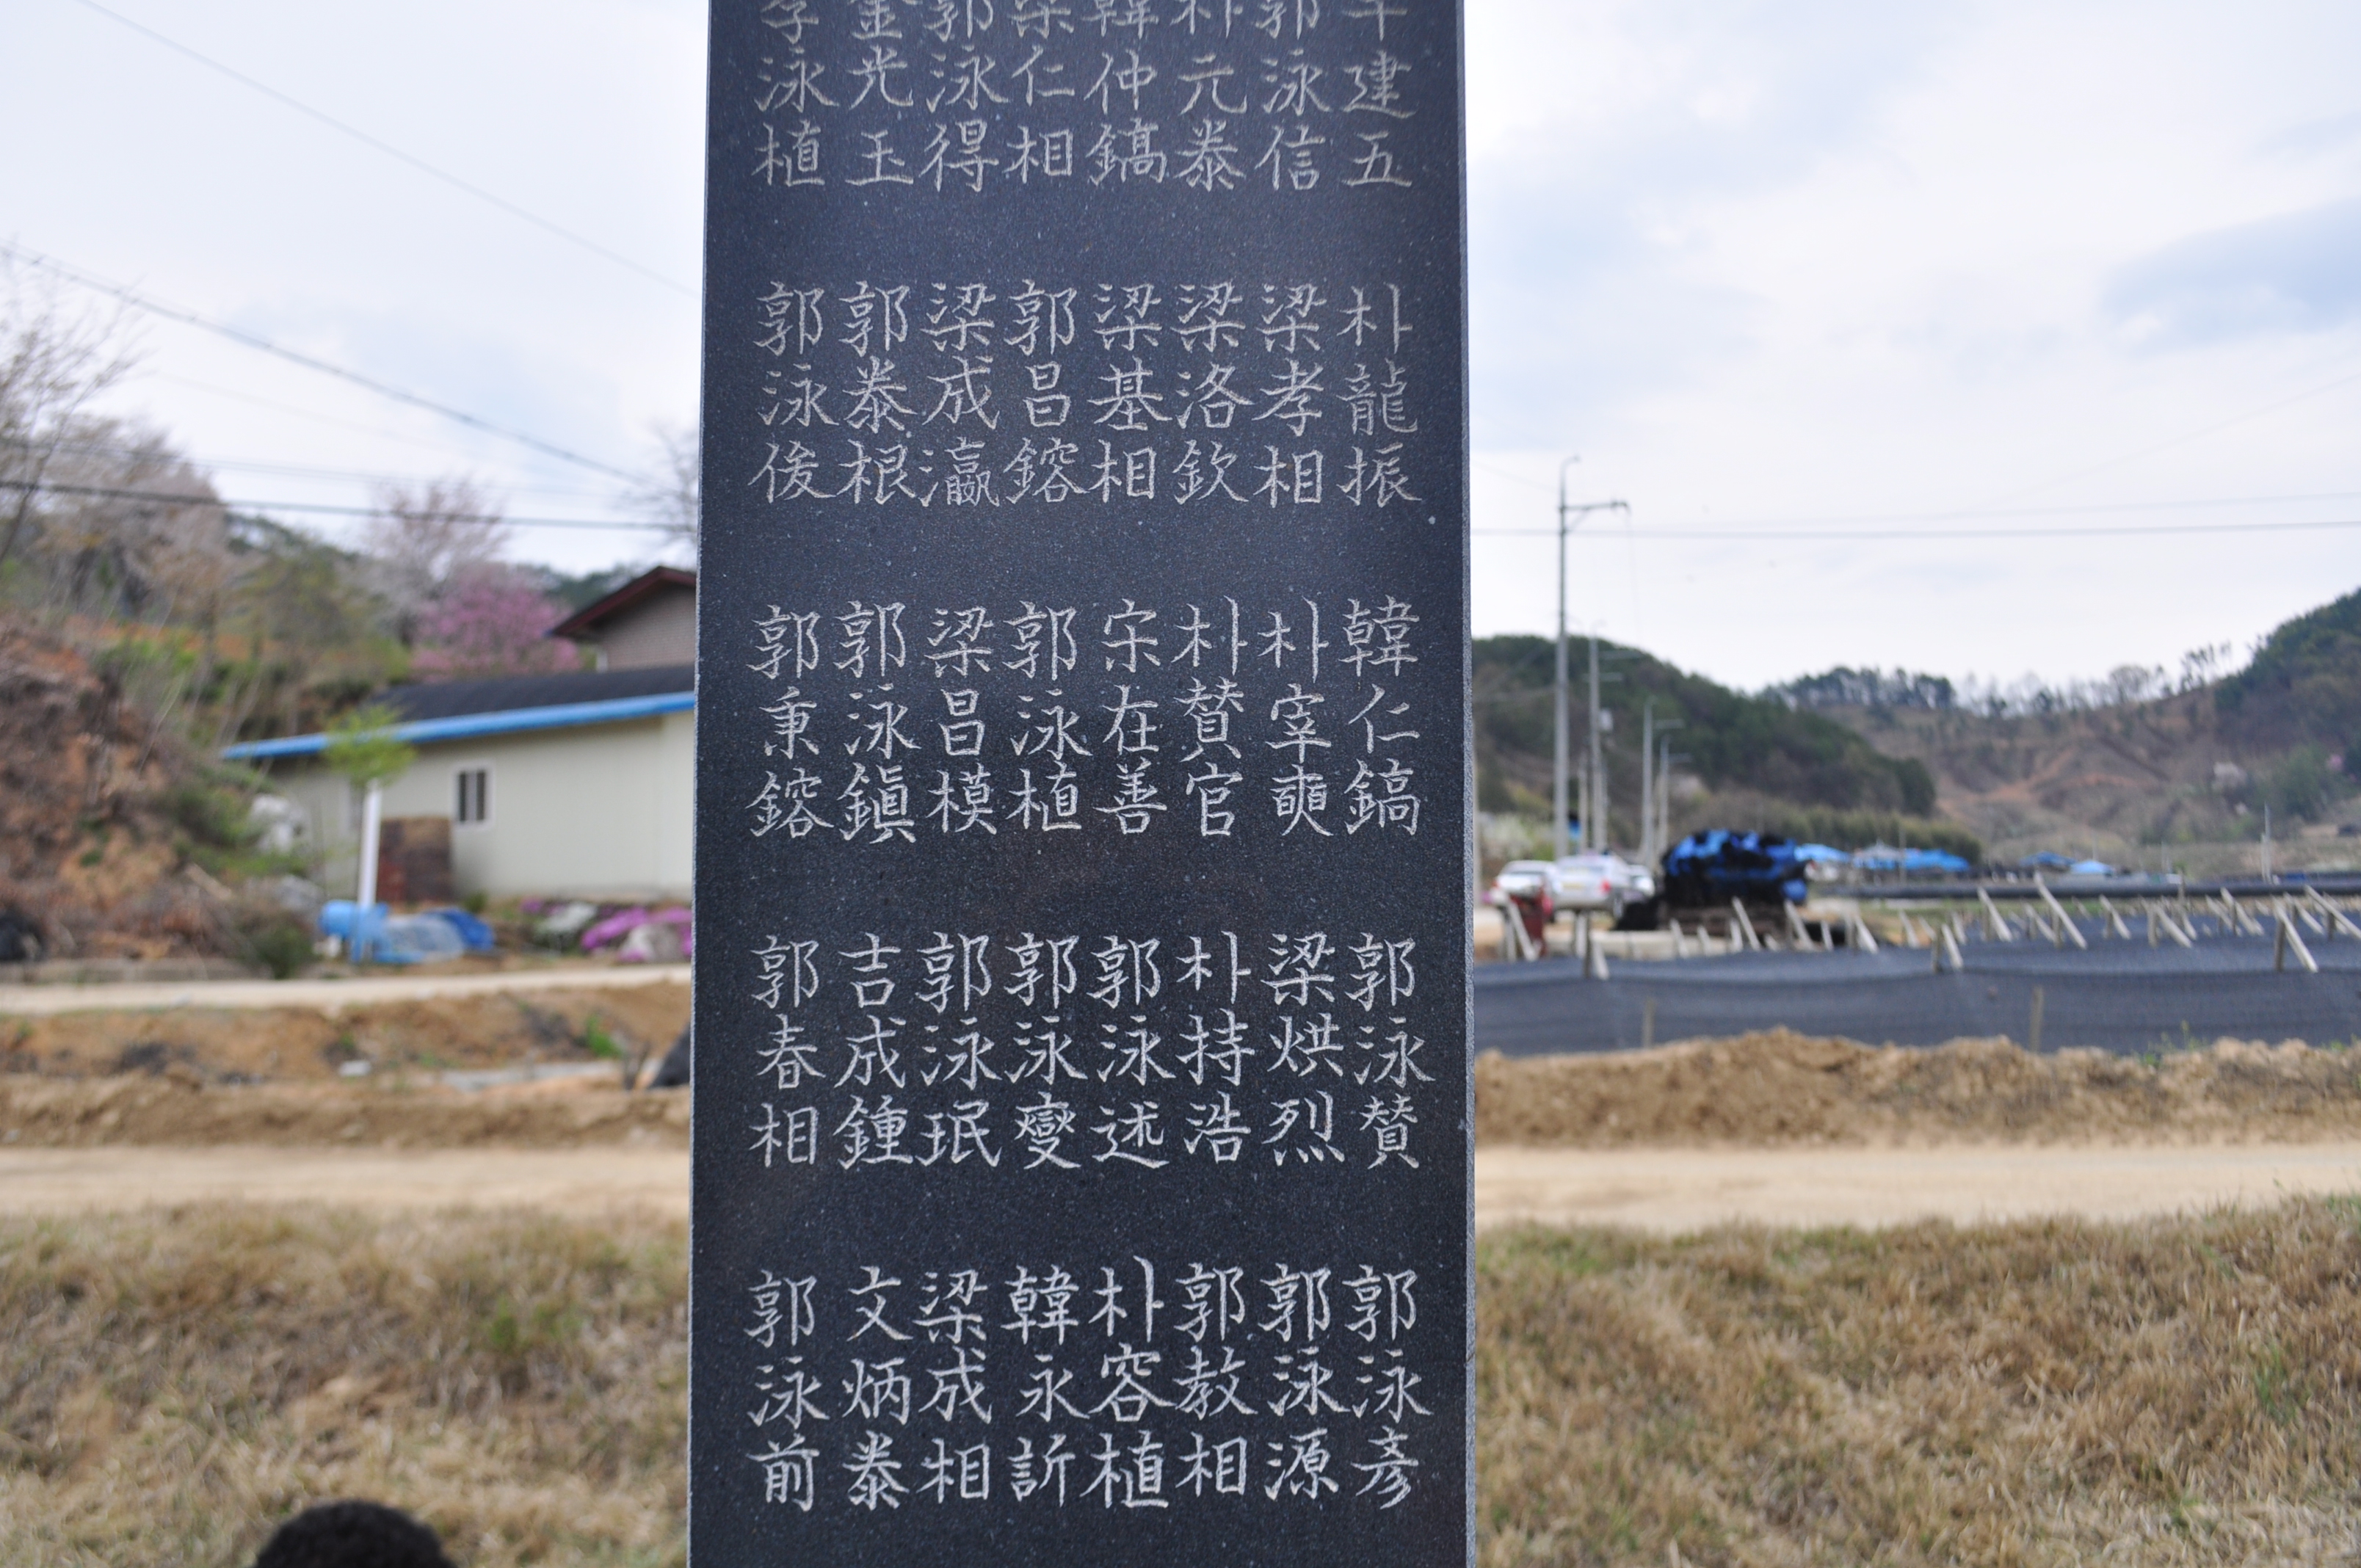 建五
郭泳信
朴元泰
韓仲鎬
梁仁相
郭泳得
金光玉
李泳植
朴龍振
梁孝相
梁洛欽
梁基相
郭昌鎔
梁成瀛
郭泰根
郭泳後
韓仁鎬
朴宰奭
朴賛官
宋在善
郭泳植
梁昌模
郭泳鎭
郭秉鎔
郭泳賛
梁烘烈
朴持浩
郭泳述
郭泳燮
郭泳珉
吉成鍾
郭春相
郭泳彦
郭泳源
郭教相
朴容植
韓永訢
梁成相
文炳泰
郭泳前